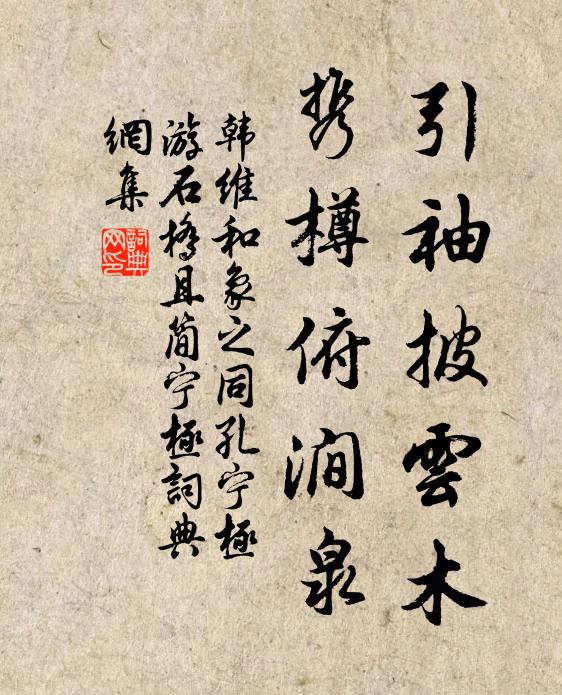 引袖披雲木
携樽俯澗泉
韩維和象之同孔宁極
游石橋且简宁極詞典
網集
詞典
网印